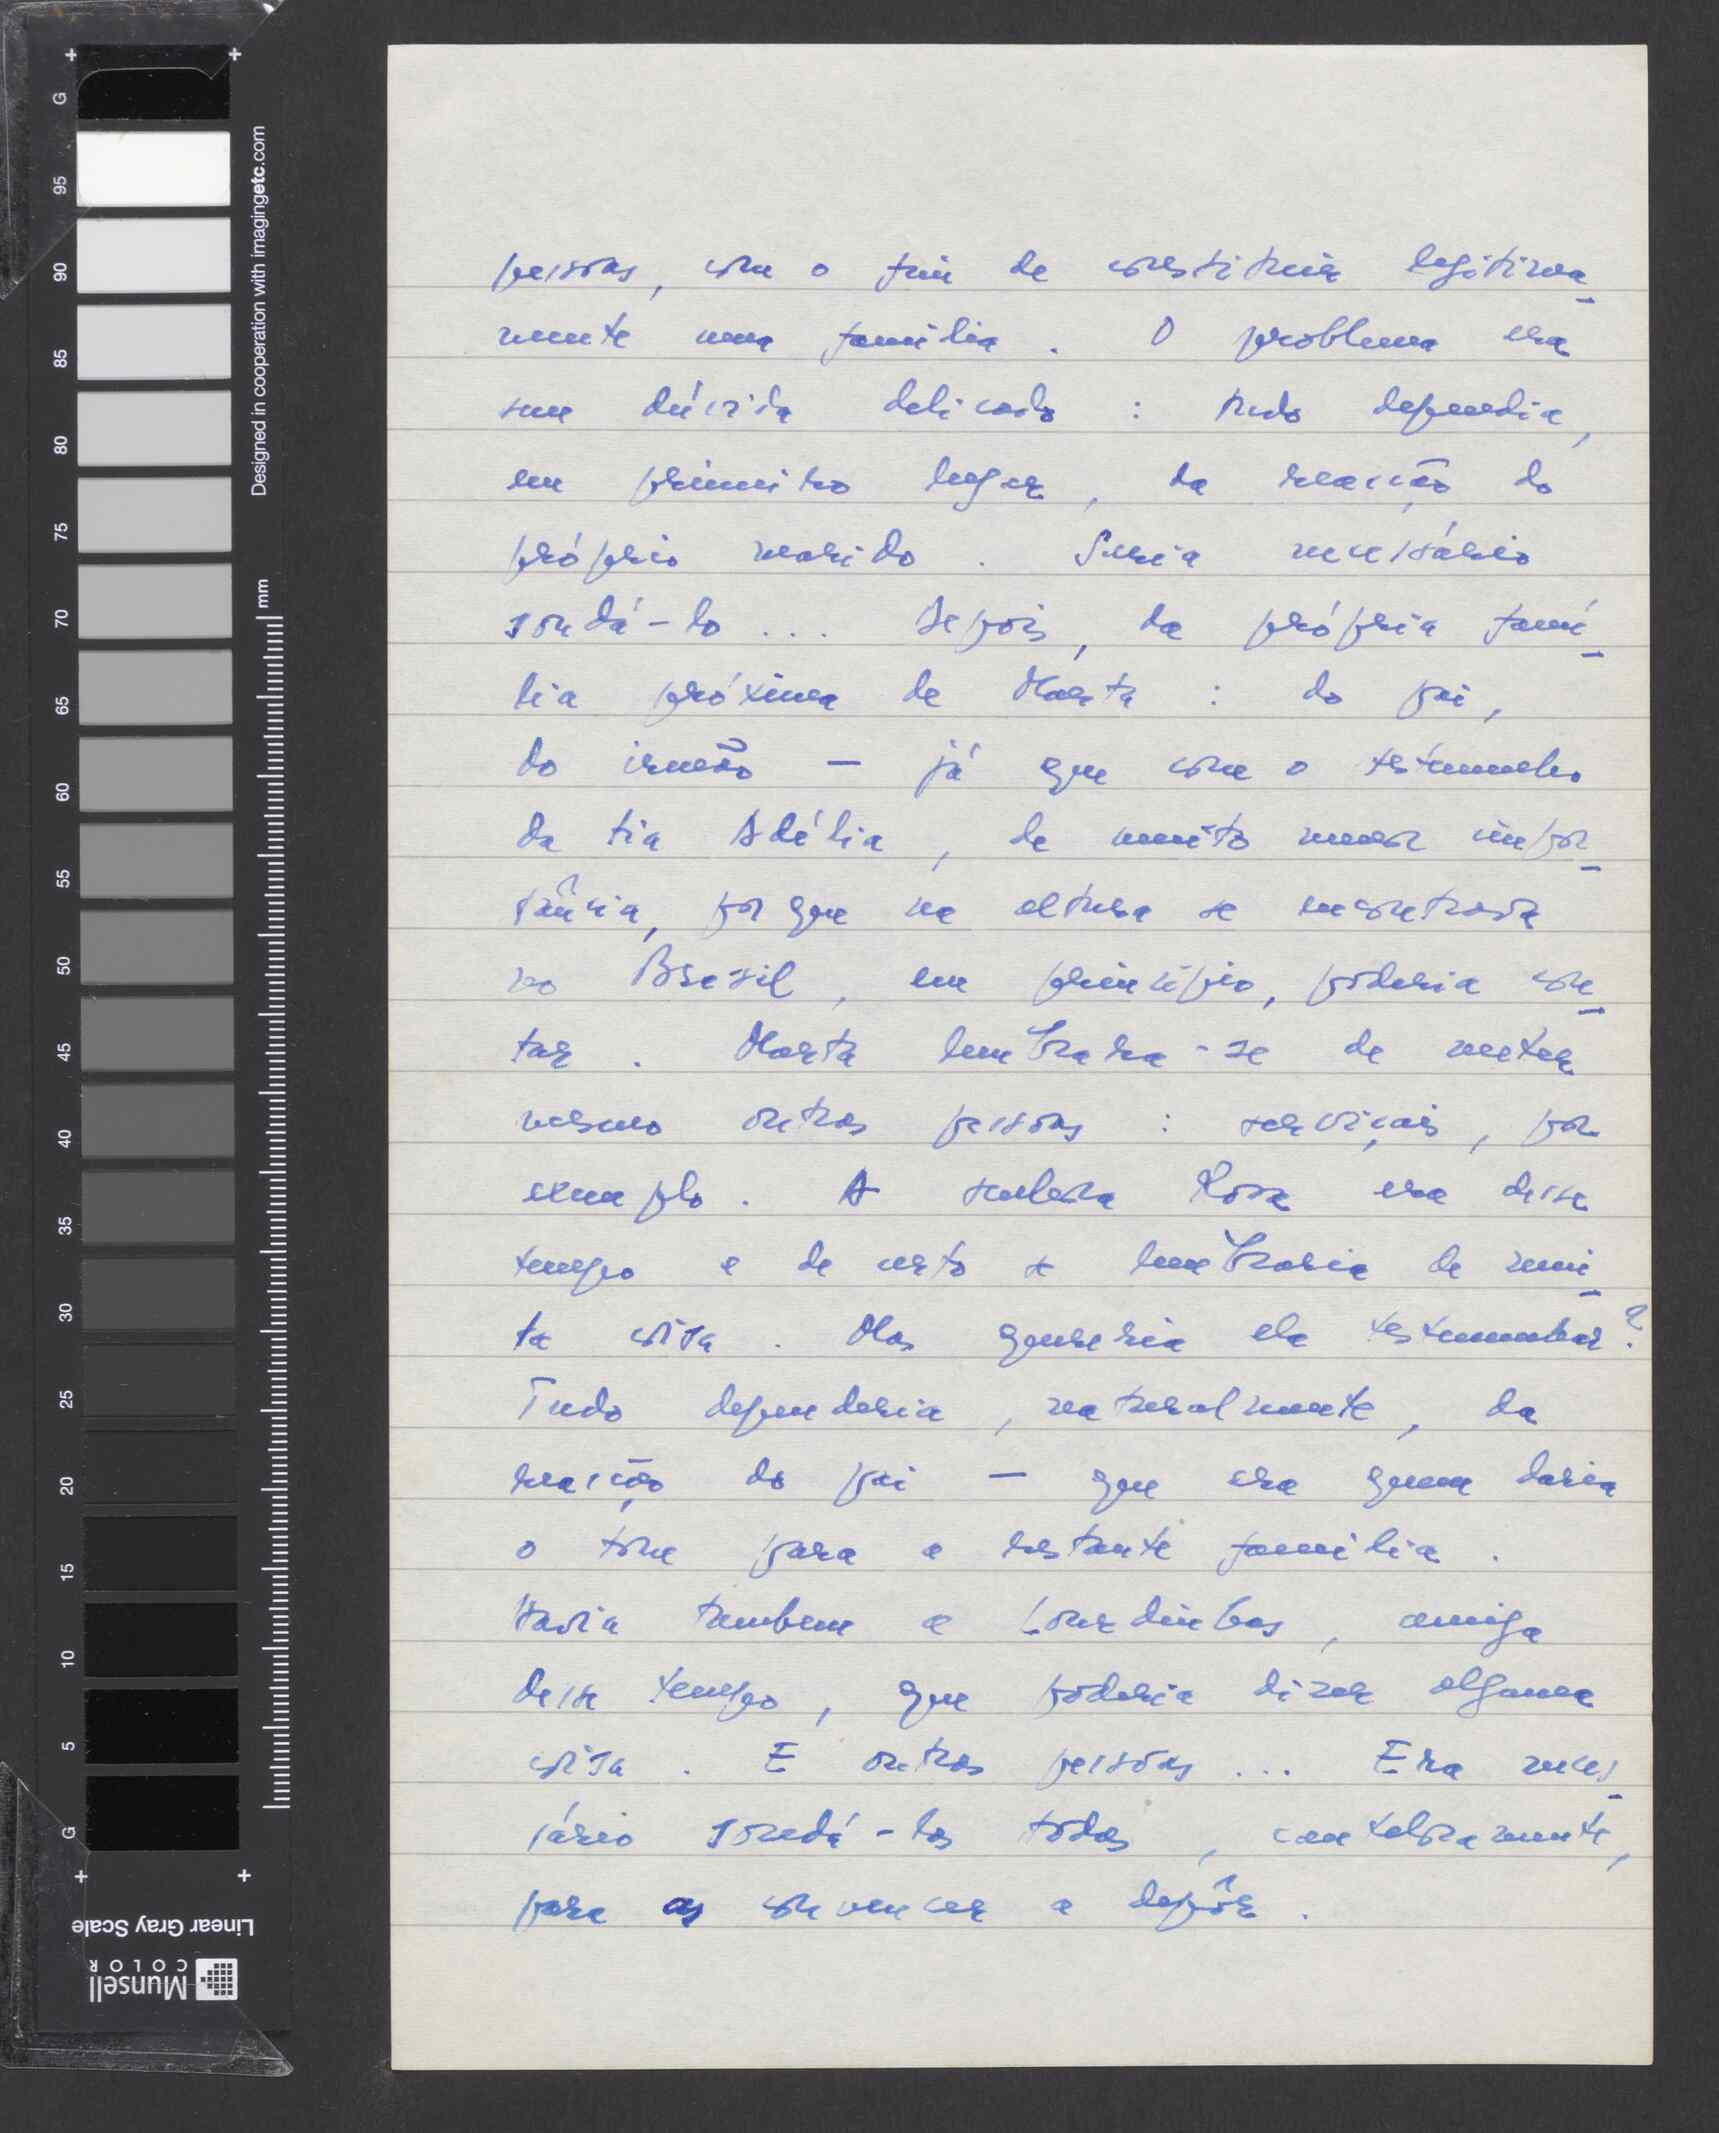 pessoas, com o fim de constituir legitima-
mente uma familia. O problema era
sem dúvida delicado: tudo dependia,
em primeiro lugar, da reacção do
próprio marido. Seria necessário
sondá-lo... Depois, da própria famí-
lia próxima de Marta: do pai,
do irmão — já que com o testemunho
da tia Adélia, de muito menor impor-
tância, porque na altura se encontrava
no Brasil, em princípio, poderia con-
tar. Marta lembrara-se de meter
mesmo outras pessoas: serviçais, por
exemplo. A senhora Rosa era desse
tempo e de certo se lembraria de mui-
ta coisa. Mas quereria ela testemunhar?
Tudo dependeria, naturalmente, da
reacção do pai — que era quem daria
o tom para a restante familia.
Havia tambem a Lourdinhas, amiga
desse tempo, que poderia dizer alguma
coisa. E outras pessoas... Era neces-
sário sondá-los todos, cautelosamente,
para os convencer a depôr.
G
95
90
85
80
75
70
65
60
55
50
45
40
35
30
25
20
15
10
5
G
Designed in cooperation with imagingetc.com
mm
Linear Gray Scale
Munsell
COLOR